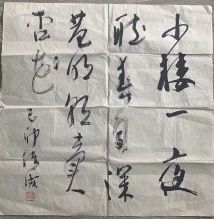 小樓一夜
聽春雨深
巷明朝賣
杏花
己卯